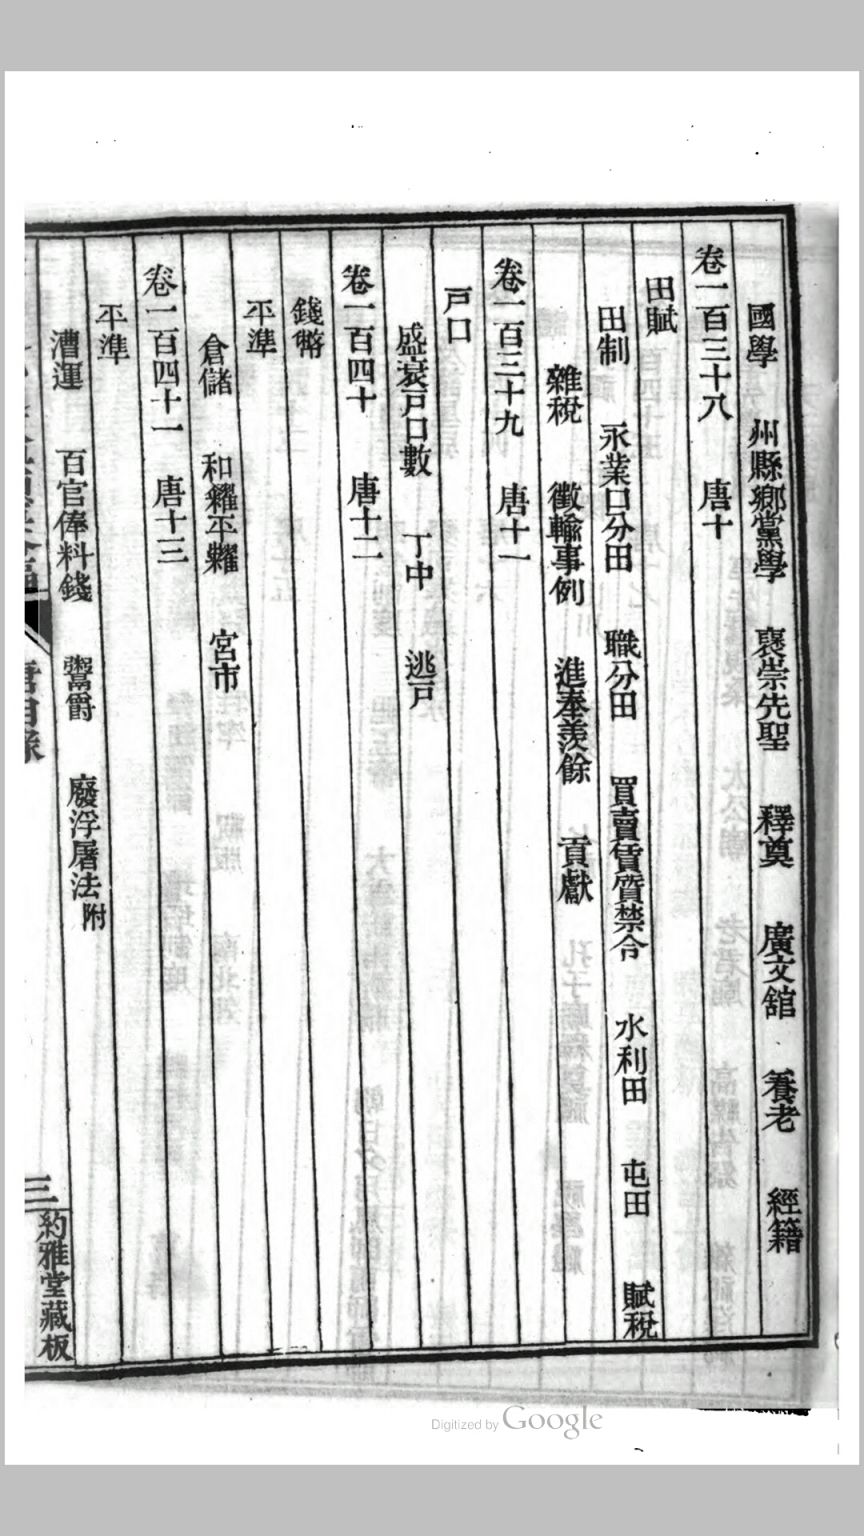 國學　州縣鄉黨學　襃崇先聖　釋奠　廣文舘　養老　經籍
卷一百三十八　唐十
田賦
田制　永業口分田　職分田　買賣貰質禁令　水利田　屯田　賦稅
雜稅　徵輸事例　進奉羨餘　貢獻
卷一百三十九　唐十一
戸口
盛衰戸口數　丁中　逃戸
卷一百四十　唐十二
錢幣
平準
倉儲　和糴平糶　宮市
卷一百四十一　唐十三
平準
漕運　百官俸料錢　鬻爵　廢浮屠法附
唐目錄
三
約雅堂藏板
Digitized by Google